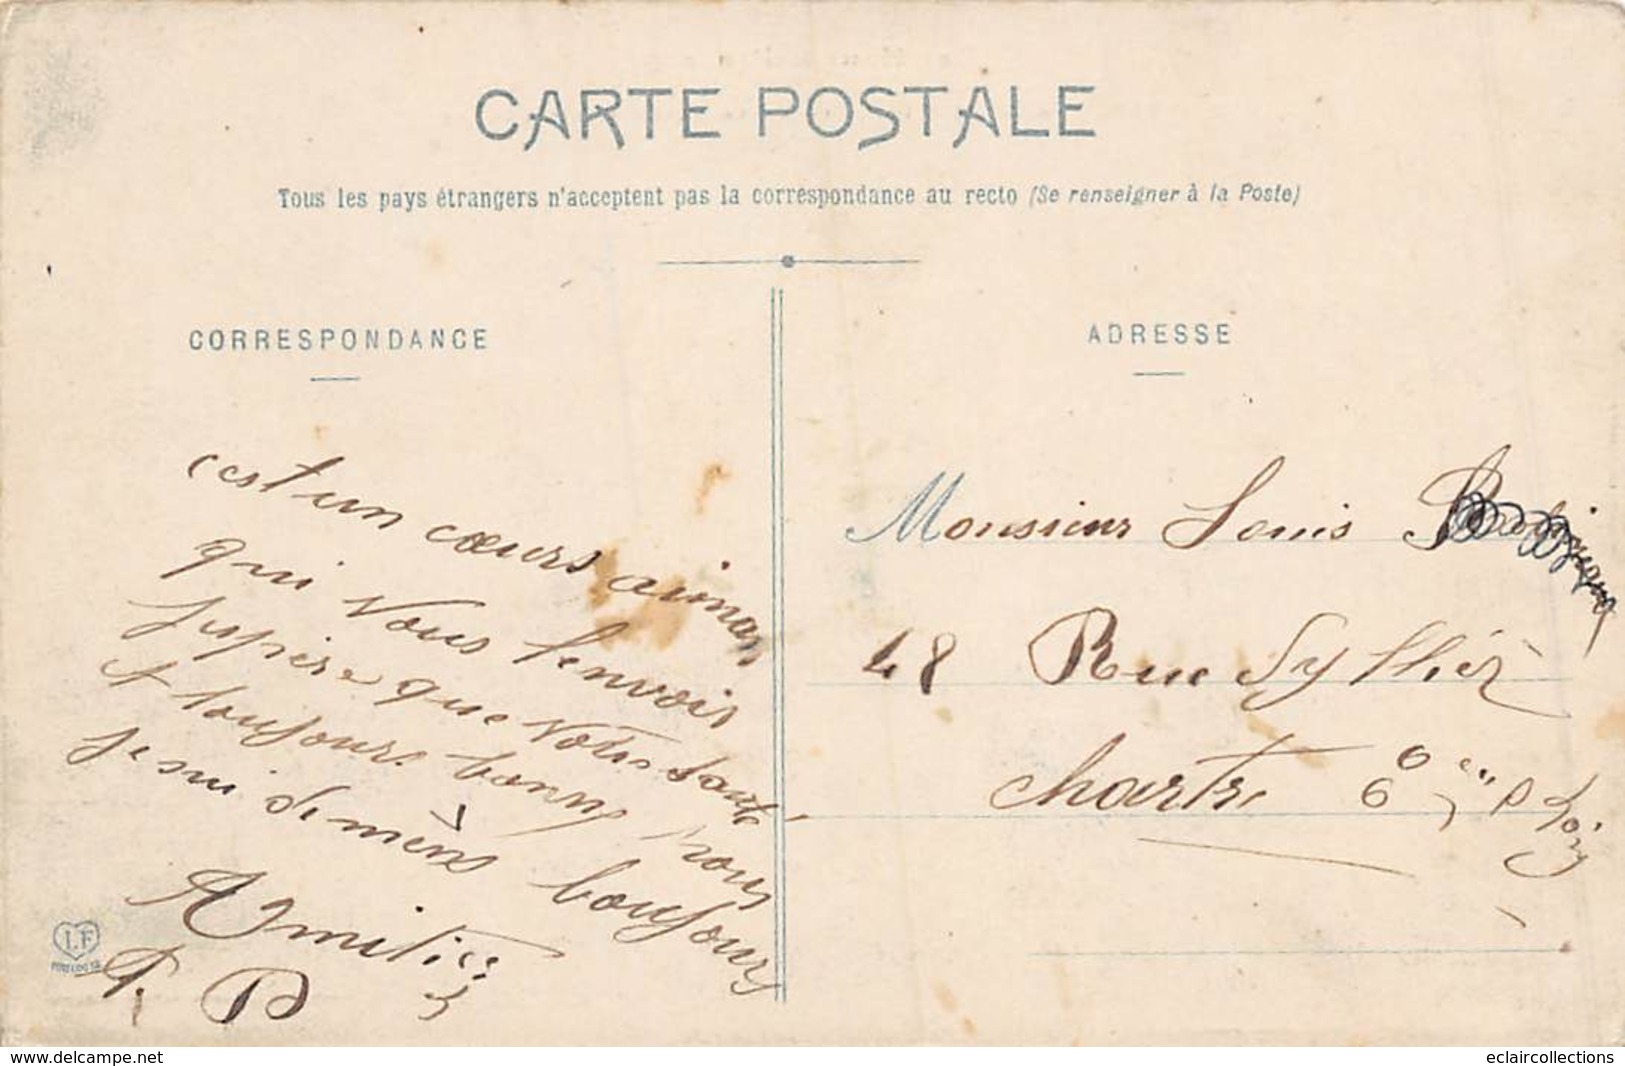 CARTE POSTALE
Tous les pays étrangers n'acceptent pas la correspondance au recto (Se renseigner à la Poste)
CORRESPONDANCE
ADRESSE
cest un cœurs aiman
qui vous l'envois
Jespère que votre santé
t toujours bonne nous
Je sui demême toujours
Amitiés
P. B
Monsieur Louis
48 Rue
Chartre
LF
www.delcampe.net
eclaircollections